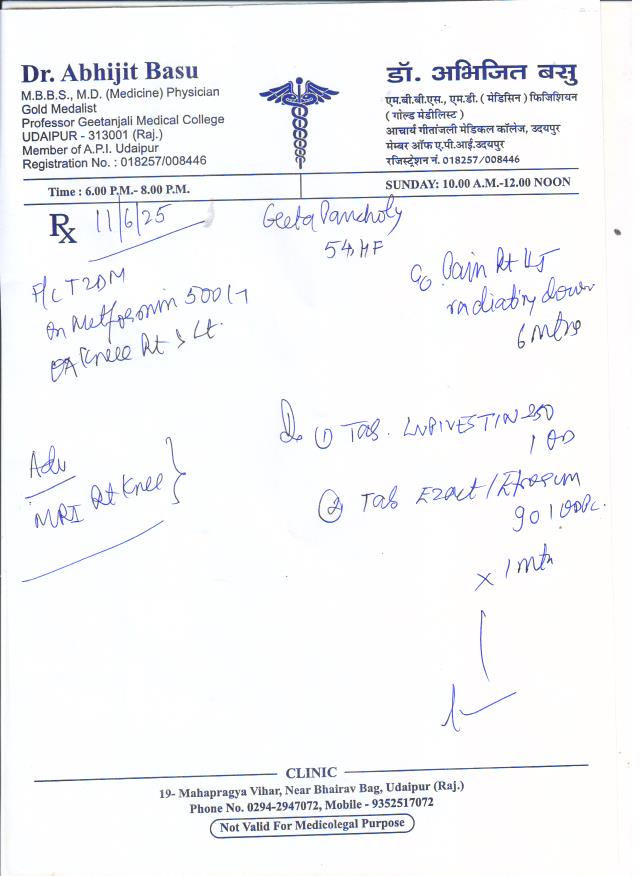 Dr. Abhijit Basu
M.B.B.S., M.D. (Medicine) Physician
Gold Medalist
Professor Geetanjali Medical College
UDAIPUR - 313001 (Raj.)
Member of A.P.I. Udaipur
Registration No. : 018257/008446
डॉ. अभिजित बसु
एम.बी.बी.एस., एम.डी. ( मेडिसिन ) फिजिशियन
( गोल्ड मेडीलिस्ट )
आचार्य गीतांजली मेडिकल कॉलेज, उदयपुर
मेम्बर ऑफ ए.पी.आई.उदयपुर
रजिस्ट्रेशन नं. 018257/008446
Time : 6.00 P.M.- 8.00 P.M.
SUNDAY: 10.00 A.M.-12.00 NOON
Rx 11/6/25
Geeta Pancholy
54 F
c/o Pain Rt
radiating down
T2DM
on Metformin 500
OA Knee Rt > Lt.
Adv
MRI Rt Knee
① Tab. 250
1 OD
② Tab Ezact/
90 1 OD
x 1 mth
CLINIC
19- Mahapragya Vihar, Near Bhairav Bag, Udaipur (Raj.)
Phone No. 0294-2947072, Mobile - 9352517072
Not Valid For Medicolegal Purpose